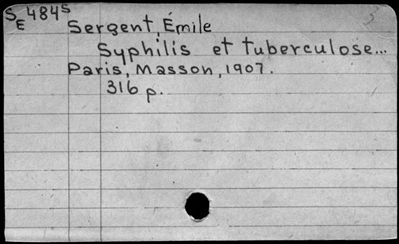 S 484S
E
Sergent, Émile
Syphilis et tuberculose...
Paris, Masson, 1907.
316 p.